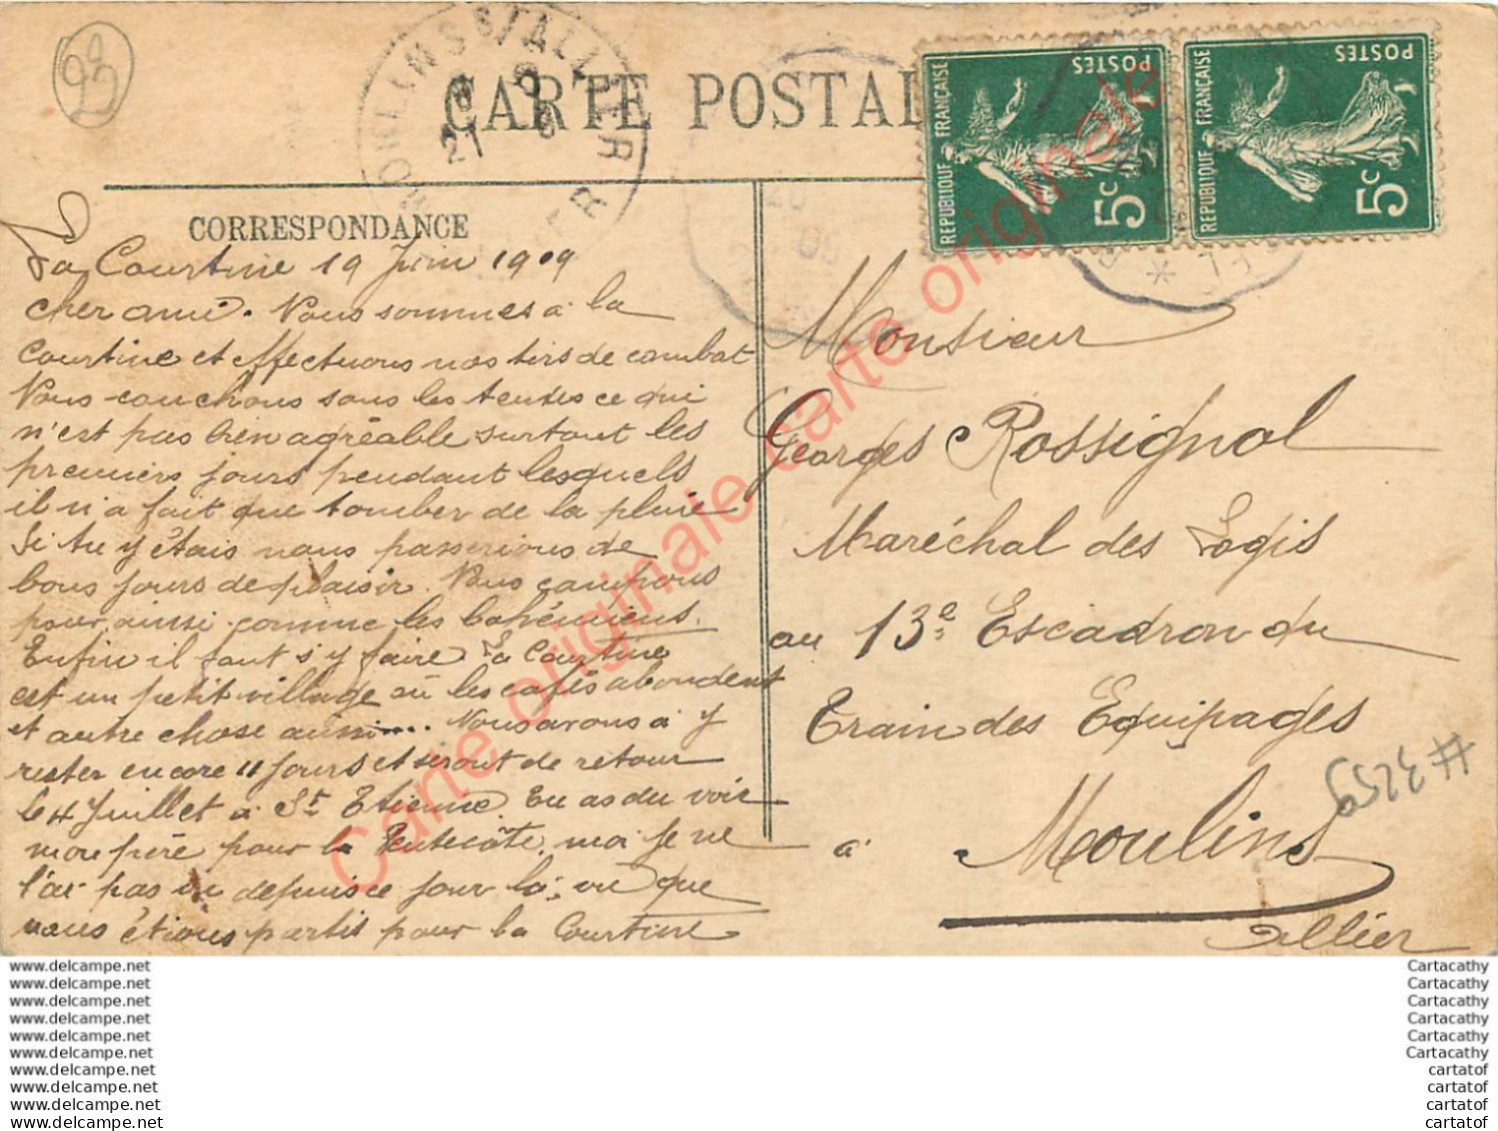 93
MOULINS S/ALLIER
21
CARTE POSTAL
REPUBLIQUE FRANÇAISE
POSTES
5c
REPUBLIQUE FRANÇAISE
POSTES
5c
CORRESPONDANCE
La Courtine 19 Juin 1909
cher ami. Nous sommes à la
Courtine et effectuons nos tirs de combat
Nous couchons sous les tentes ce qui
n'est pas bien agréable surtout les
premiers jours pendant lesquels
il n'a fait que tomber de la pluie
Si tu y étais nous passerions de
bons jours de plaisir. Nous campons
pour ainsi comme les bohémiens.
Enfin il faut s'y faire La Courtine
est un petit village où les cafés abondent
et autre chose aussi.... Nous avons à y
rester encore 11 jours et seront de retour
le 4 Juillet à St Etienne. Tu as du voir
mon père pour la Pentecôte. moi je ne
l'ai pas vu depuis ce jour là, vu que
nous étions partis pour la Courtine
Monsieur
Georges Rossignol
Maréchal des Logis
au 13e Escadron du
Train des Equipages
à Moulins
Allier
# 3259
Carte originale carte originale
www.delcampe.net
www.delcampe.net
www.delcampe.net
www.delcampe.net
www.delcampe.net
www.delcampe.net
www.delcampe.net
www.delcampe.net
www.delcampe.net
www.delcampe.net
Cartacathy
Cartacathy
Cartacathy
Cartacathy
Cartacathy
Cartacathy
cartatof
cartatof
cartatof
cartatof